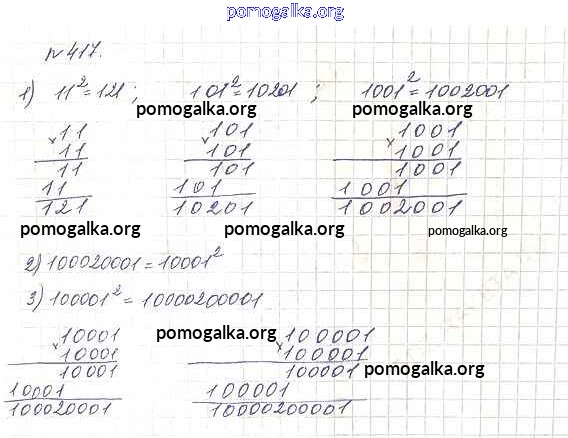 pomogalka.org
№417.
1) 11²=121; 101²=10201; 1001²=1002001
pomogalka.org pomogalka.org
11 101 1001
× 11 × 101 × 1001
11 101 1001
11 101 1001
121 10201 1002001
pomogalka.org pomogalka.org pomogalka.org
2) 100020001=10001²
3) 100001²=10000200001
10001 pomogalka.org 100001
× 10001 × 100001
10001 100001 pomogalka.org
10001 100001
100020001 10000200001